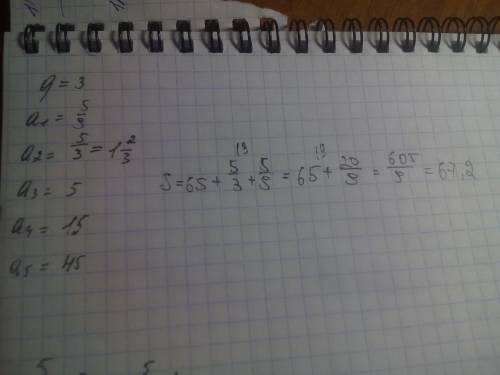 q = 3
a1 = 5/9
a2 = 5/3 = 1 2/3
a3 = 5
a4 = 15
a5 = 45
S = 65 + 5/3 + 5/9 = 65 + 20/9 = 605/9 = 67,2